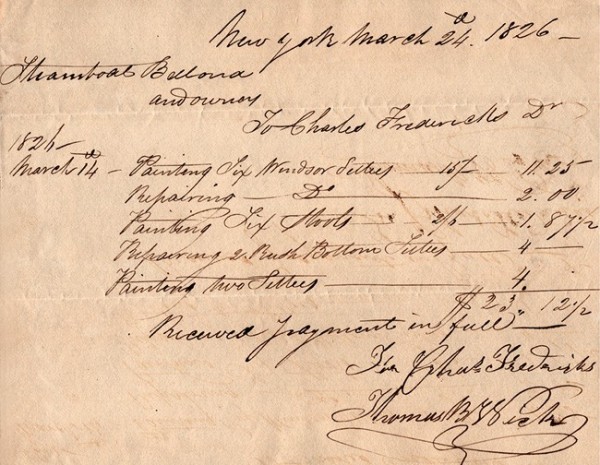 New York March 24.d 1826 —
Steamboat Bellona
and owners
To Charles Fredericks Dr
1826
March 14d — Painting Six Windsor Settees — 15/ — 11.25
Repairing — Do — 2.00.
Painting Six Stools 2/6 — 1.87½
Repairing 2 Rush Bottom Settees — 4 —
Painting two Settees — 4.
$23.12½
Received payment in full —
For Chas Fredericks
Thomas B